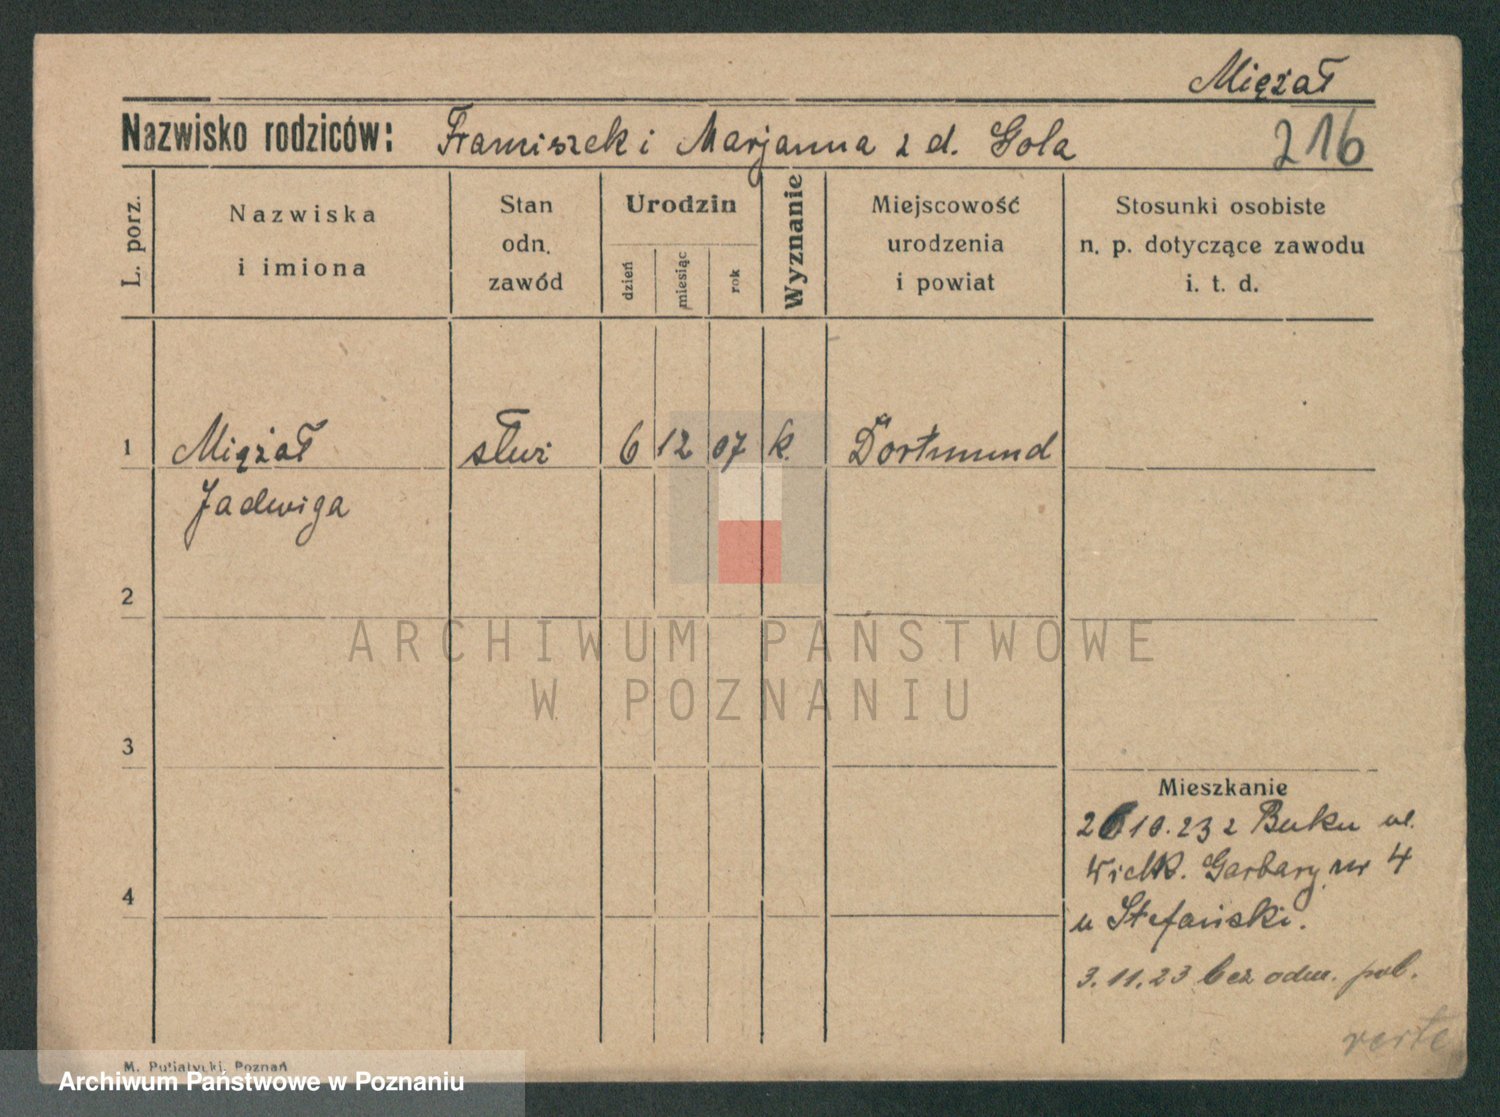 Miężał
Nazwisko rodziców: Franciszek i Marjanna z d. Gola
216
L. porz.
Nazwiska
i imiona
Stan
odn.
zawód
Urodzin
dzień
miesiąc
rok
Wyznanie
Miejscowość
urodzenia
i powiat
Stosunki osobiste
n. p. dotyczące zawodu
i. t. d.
1 Miężał służ 6 12 07 k. Dortmund
Jadwiga
2
3
Mieszkanie
26 10.23 z Buku ul.
Wielk. Garbary nr 4
4
u Stefański.
3.11.23 bez odm. pol.
verte
M. Putiatycki, Poznań
ARCHIWUM PAŃSTWOWE
W POZNANIU
Archiwum Państwowe w Poznaniu